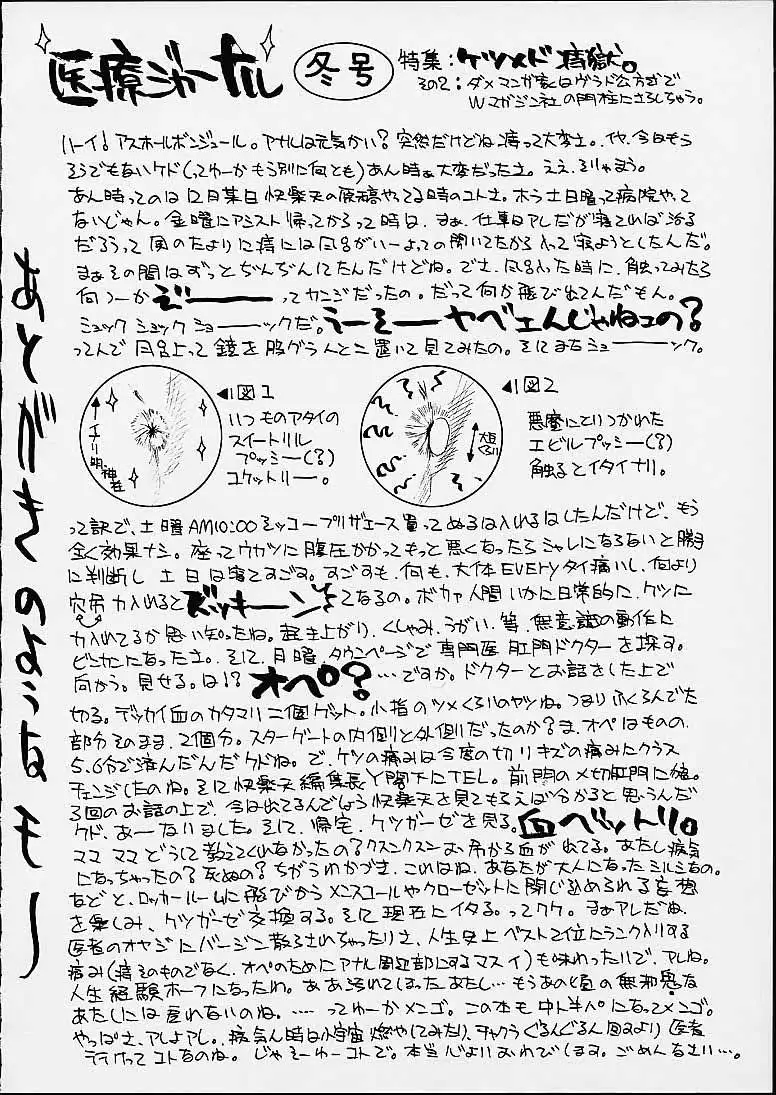 医療ジャーナル
冬号
特集：ケツメド痔獄。
その2：ダメマンガ家はヴラド公方式で
Wマガジン社の門柱にさらしちゃう。
ハーイ！アスホールボンジュール。アナルは元気かい？突然だけどね痔って大変さ。イヤ、今日もう
そうでもないケド（ってゆーかもう別に何とも）あん時ぁ大変だったさ。ええ、そりゃもう。
あん時ってのは12月某日快楽天の原稿やってる時のコトさ。ホラ土日曜って病院やって
ないじゃん。金曜にアシスト帰ってからって時は、まぁ、仕事はアレだが寝てれば治る
だろうって風のたよりに痔には風呂がいーよっての聞いてたから入って寝ようとしたんだ。
まぁその間はずっとぢんぢんしてたんだけどね。でさ、風呂入った時に、触ってみたら
何つーかぞーーってカンジだったの。だって何か飛び出てんだもん。
ミュック ショック ショーーックだ。うーそーヤベェんじゃねェの？
ってんで風呂上って鏡を股グラんとこ置いて見てみたの。そしてまたショーーック。
◀図1
いつものアタイの
スイートリル
プッシー（？）
ユケットリー。
イナリ明神在
◀図2
悪魔にとりつかれた
エビルプッシー（？）
触るとイタイナリ。
大豆ぐらい
って訳で、土曜AM10:00ミッコープリザエース買ってぬるは入れるはしたんだけど、もう
全く効果ナシ。座ってウカツに腹圧かかってもっと悪くなったらシャレにならないと勝手
に判断し 土日は寝てすごす。すごすも、何も、大体EVERYタイ痛いし、何より
穴吊力入れるとズッキーンってなるの。ボカァ人間いかに日常的に、ケツに
力入れてるか思い知ったね。起き上がり、くしゃみ、うがい、等、無意識の動作に
ビンカンになったさ。そして、月曜、タウンページで専門医肛門ドクターを探す。
向かう。見せる。は!? オペ？…ですか。ドクターとお話をした上で
切る。デッカイ血のカタマリ二個ゲット。小指のツメくらいのヤツね。つまりふくらんでた
部分そのまま、2個分。スターゲートの内側と外側だったのか？ま、オペはものの
5、6分で済んだんだケドね。で、ケツの痛みは今度の切りキズの痛みにクラス
チェンジしたのね。そして快楽天編集長Y閣下にTEL。前門の〆切肛門に痔。
3回のお話の上で、今は出てるんでしょう快楽天を見てもらえば分かると思うんだ
ケド、あーなりました。そして、帰宅、ケツガーゼを見る。血ベットリ。
ママ ママ どうして教えてくれなかったの？クスンクスンお吊から血が出てる。あたし病気
になっちゃったの？死ぬの？ちがうわかづき、これはね、あなたが大人になったシルシなの。
などと、ロッカールームに飛びかうメンスコールやクローゼットに閉じ込められる妄想
を楽しみ、ケツガーゼ交換する。そして現在にイタる。ってワケ。まぁアレだね、
医者のオヤジにバージン散らされちゃったりさ、人生史上ベスト2位にランク入りする
痛み（痔そのものでなく、オペのためにアナル周辺部にするマスイ）も味わったりで、アレね。
人生経験ホーフになったわ。ああ汚れてしまったあたし…もうあの頃の無邪鬼な
あたしには戻れないのね。……ってゆーかメンゴ。この本も中ト半パになってメンゴ。
やっぱさ、アレよアレ。病気ん時は小宇宙燃やしてみたり、チャクラぐるんぐるん回すより医者
行けってコトなのね。じゃそーゆーコトで。本当心よりおわびします。ごめんなさい…。
あとがきのようなモノ